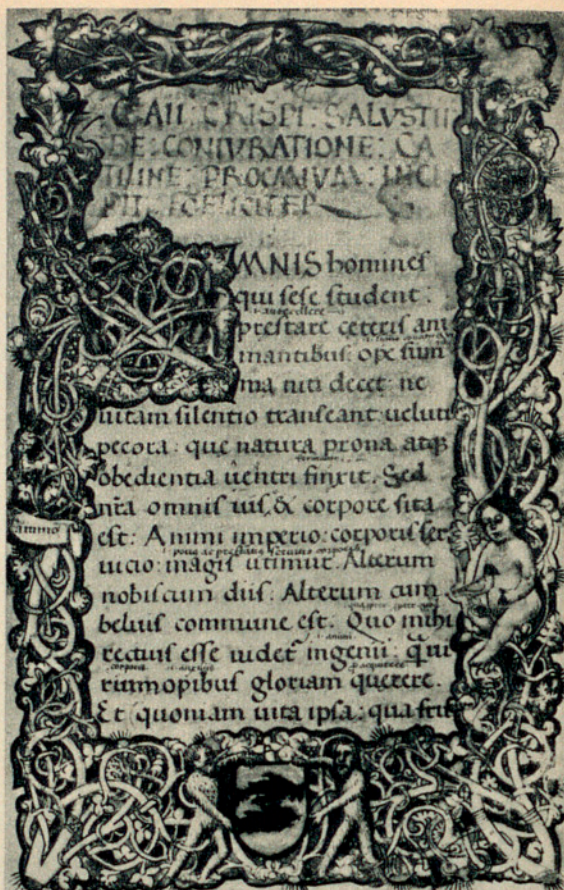 GAII: CRISPI: SALVSTII
DE: CONIVRATIONE: CA
TILINE: PROEMIVM: INCI
PIT: FOELICITER
OMNIS homines
qui sese student:
prestare ceteris ani
mantibus: ope sum
ma niti decet: ne
uitam silentio transeant: ueluti
pecora: que natura prona atq;
obedientia uentri finxit. Sed
nr̄a omnis uis, & corpore sita
est: Animi imperio: corporis ser
uicio: magis utimur. Alterum
nobis cum diis: Alterum cum
beluis commune est. Quo mihi
rectius esse uidet̄ ingenii: q̄ ui
rium opibus gloriam querere.
Et quoniam uita ipsa: qua